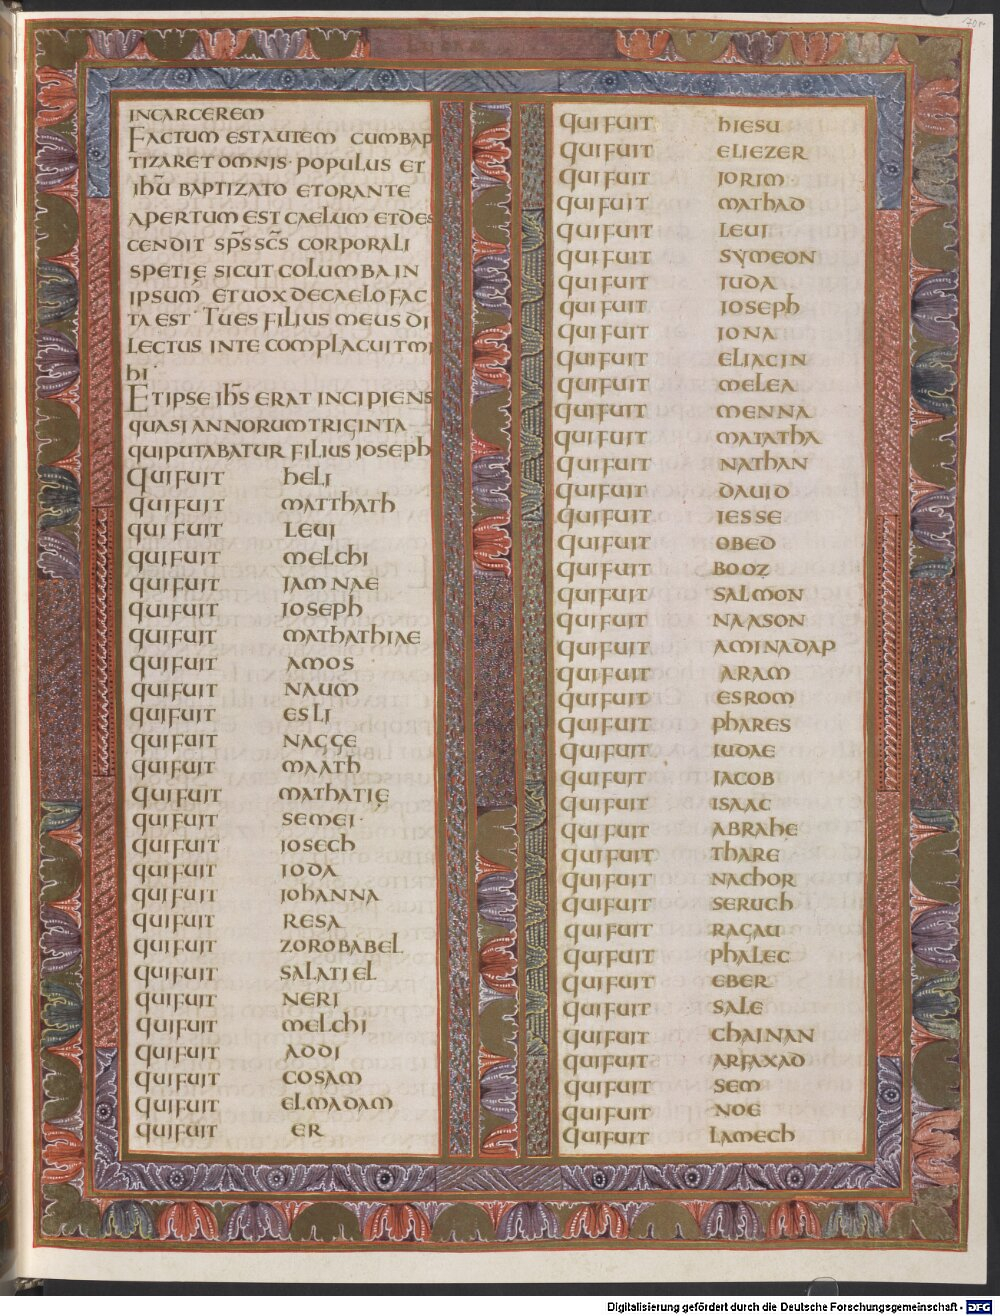 70r
INCARCEREM
FACTUM ESTAUTEM CUMBAP
TIZARET OMNIS· POPULUS ET
IHŪ BAPTIZATO ETORANTE
APERTUM EST CAELUM ETDES
CENDIT SP̄S SC̄S CORPORALI
SPETIĘ SICUT COLUMBA IN
IPSUM· ETUOX DECAELO FAC
TA EST· TUES FILIUS MEUS DI
LECTUS INTE COMPLACUIT MI
HI·
ETIPSE IH̄S ERAT INCIPIENS
QUASI ANNORUM TRIGINTA
QUIPUTABATUR FILIUS IOSEPH
QUIFUIT HELI
QUIFUIT MATTHATH
QUIFUIT LEUI
QUIFUIT MELCHI
QUIFUIT IAMNAE
QUIFUIT IOSEPH
QUIFUIT MATHATHIAE
QUIFUIT AMOS
QUIFUIT NAUM
QUIFUIT ESLI
QUIFUIT NAGGE
QUIFUIT MAATH
QUIFUIT MATHATIĘ
QUIFUIT SEMEI·
QUIFUIT IOSECH
QUIFUIT IODA
QUIFUIT IOHANNA
QUIFUIT RESA
QUIFUIT ZOROBABEL
QUIFUIT SALATIEL
QUIFUIT NERI
QUIFUIT MELCHI
QUIFUIT ADDI
QUIFUIT COSAM
QUIFUIT ELMADAM
QUIFUIT ER
QUIFUIT HIESU
QUIFUIT ELIEZER
QUIFUIT IORIM
QUIFUIT MATHAD
QUIFUIT LEUI
QUIFUIT SYMEON
QUIFUIT IUDA
QUIFUIT IOSEPH
QUIFUIT IONA
QUIFUIT ELIACIN
QUIFUIT MELEA
QUIFUIT MENNA
QUIFUIT MATATHA
QUIFUIT NATHAN
QUIFUIT DAUID
QUIFUIT IESSE
QUIFUIT OBED
QUIFUIT BOOZ
QUIFUIT SALMON
QUIFUIT NAASON
QUIFUIT AMINADAP
QUIFUIT ARAM
QUIFUIT ESROM
QUIFUIT PHARES
QUIFUIT IUDAE
QUIFUIT IACOB
QUIFUIT ISAAC
QUIFUIT ABRAHE
QUIFUIT THARE
QUIFUIT NACHOR
QUIFUIT SERUCH
QUIFUIT RAGAU
QUIFUIT PHALEC
QUIFUIT EBER
QUIFUIT SALE
QUIFUIT CHAINAN
QUIFUIT ARFAXAD
QUIFUIT SEM
QUIFUIT NOE
QUIFUIT LAMECH
Digitalisierung gefördert durch die Deutsche Forschungsgemeinschaft - DFG